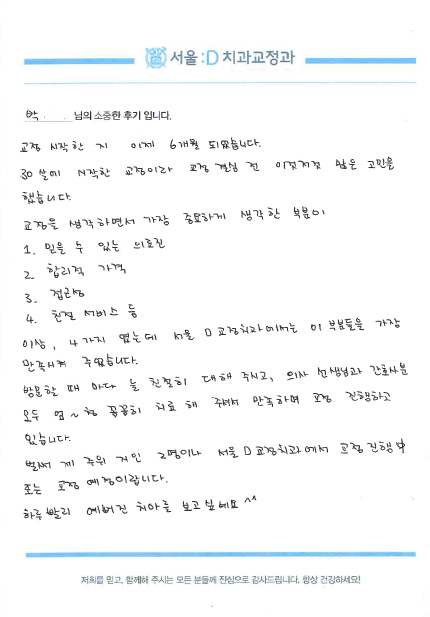 서울:D 치과교정과
박. . . 님의 소중한 후기 입니다.
교정 시작한 지 이제 6개월 되었습니다.
30살에 시작한 교정이라 교정 결심 전 이것저것 많은 고민을
했습니다.
교정을 생각하면서 가장 중요하게 생각한 부분이
1. 믿을 수 있는 의료진
2. 합리적 가격
3. 접근성
4. 친절 서비스 등
이상, 4가지 였는데 서울D교정치과에서는 이 부분들을 가장
만족시켜 주었습니다.
방문할 때 마다 늘 친절히 대해 주시고, 의사 선생님과 간호사분
모두 엄~청 꼼꼼히 치료 해 주셔서 만족하며 교정 진행하고
있습니다.
벌써 제 주위 지인 2명이나 서울D교정치과에서 교정진행中
또는 교정 예정이랍니다.
하루 빨리 예뻐진 치아를 보고 싶네요^^
저희를 믿고, 함께해 주시는 모든 분들께 진심으로 감사드립니다. 항상 건강하세요!